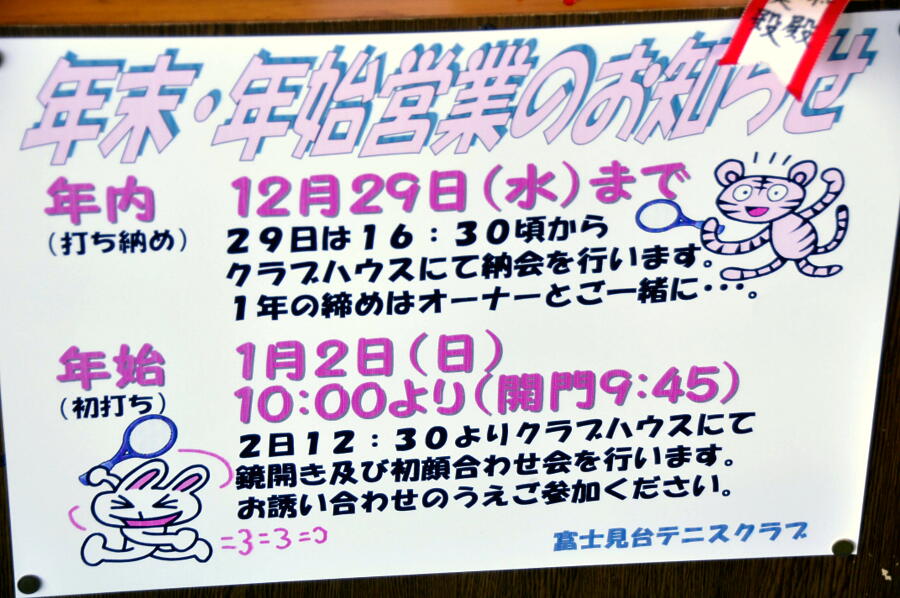 殿 殿
年末・年始営業のお知らせ
年内 12月29日(水)まで
(打ち納め) 29日は16:30頃から
クラブハウスにて納会を行います。
1年の締めはオーナーとご一緒に・・・。
年始 1月2日(日)
(初打ち) 10:00より(開門9:45)
2日12:30よりクラブハウスにて
鏡開き及び初顔合わせ会を行います。
お誘い合わせのうえご参加ください。
=3=3=3
富士見台テニスクラブ